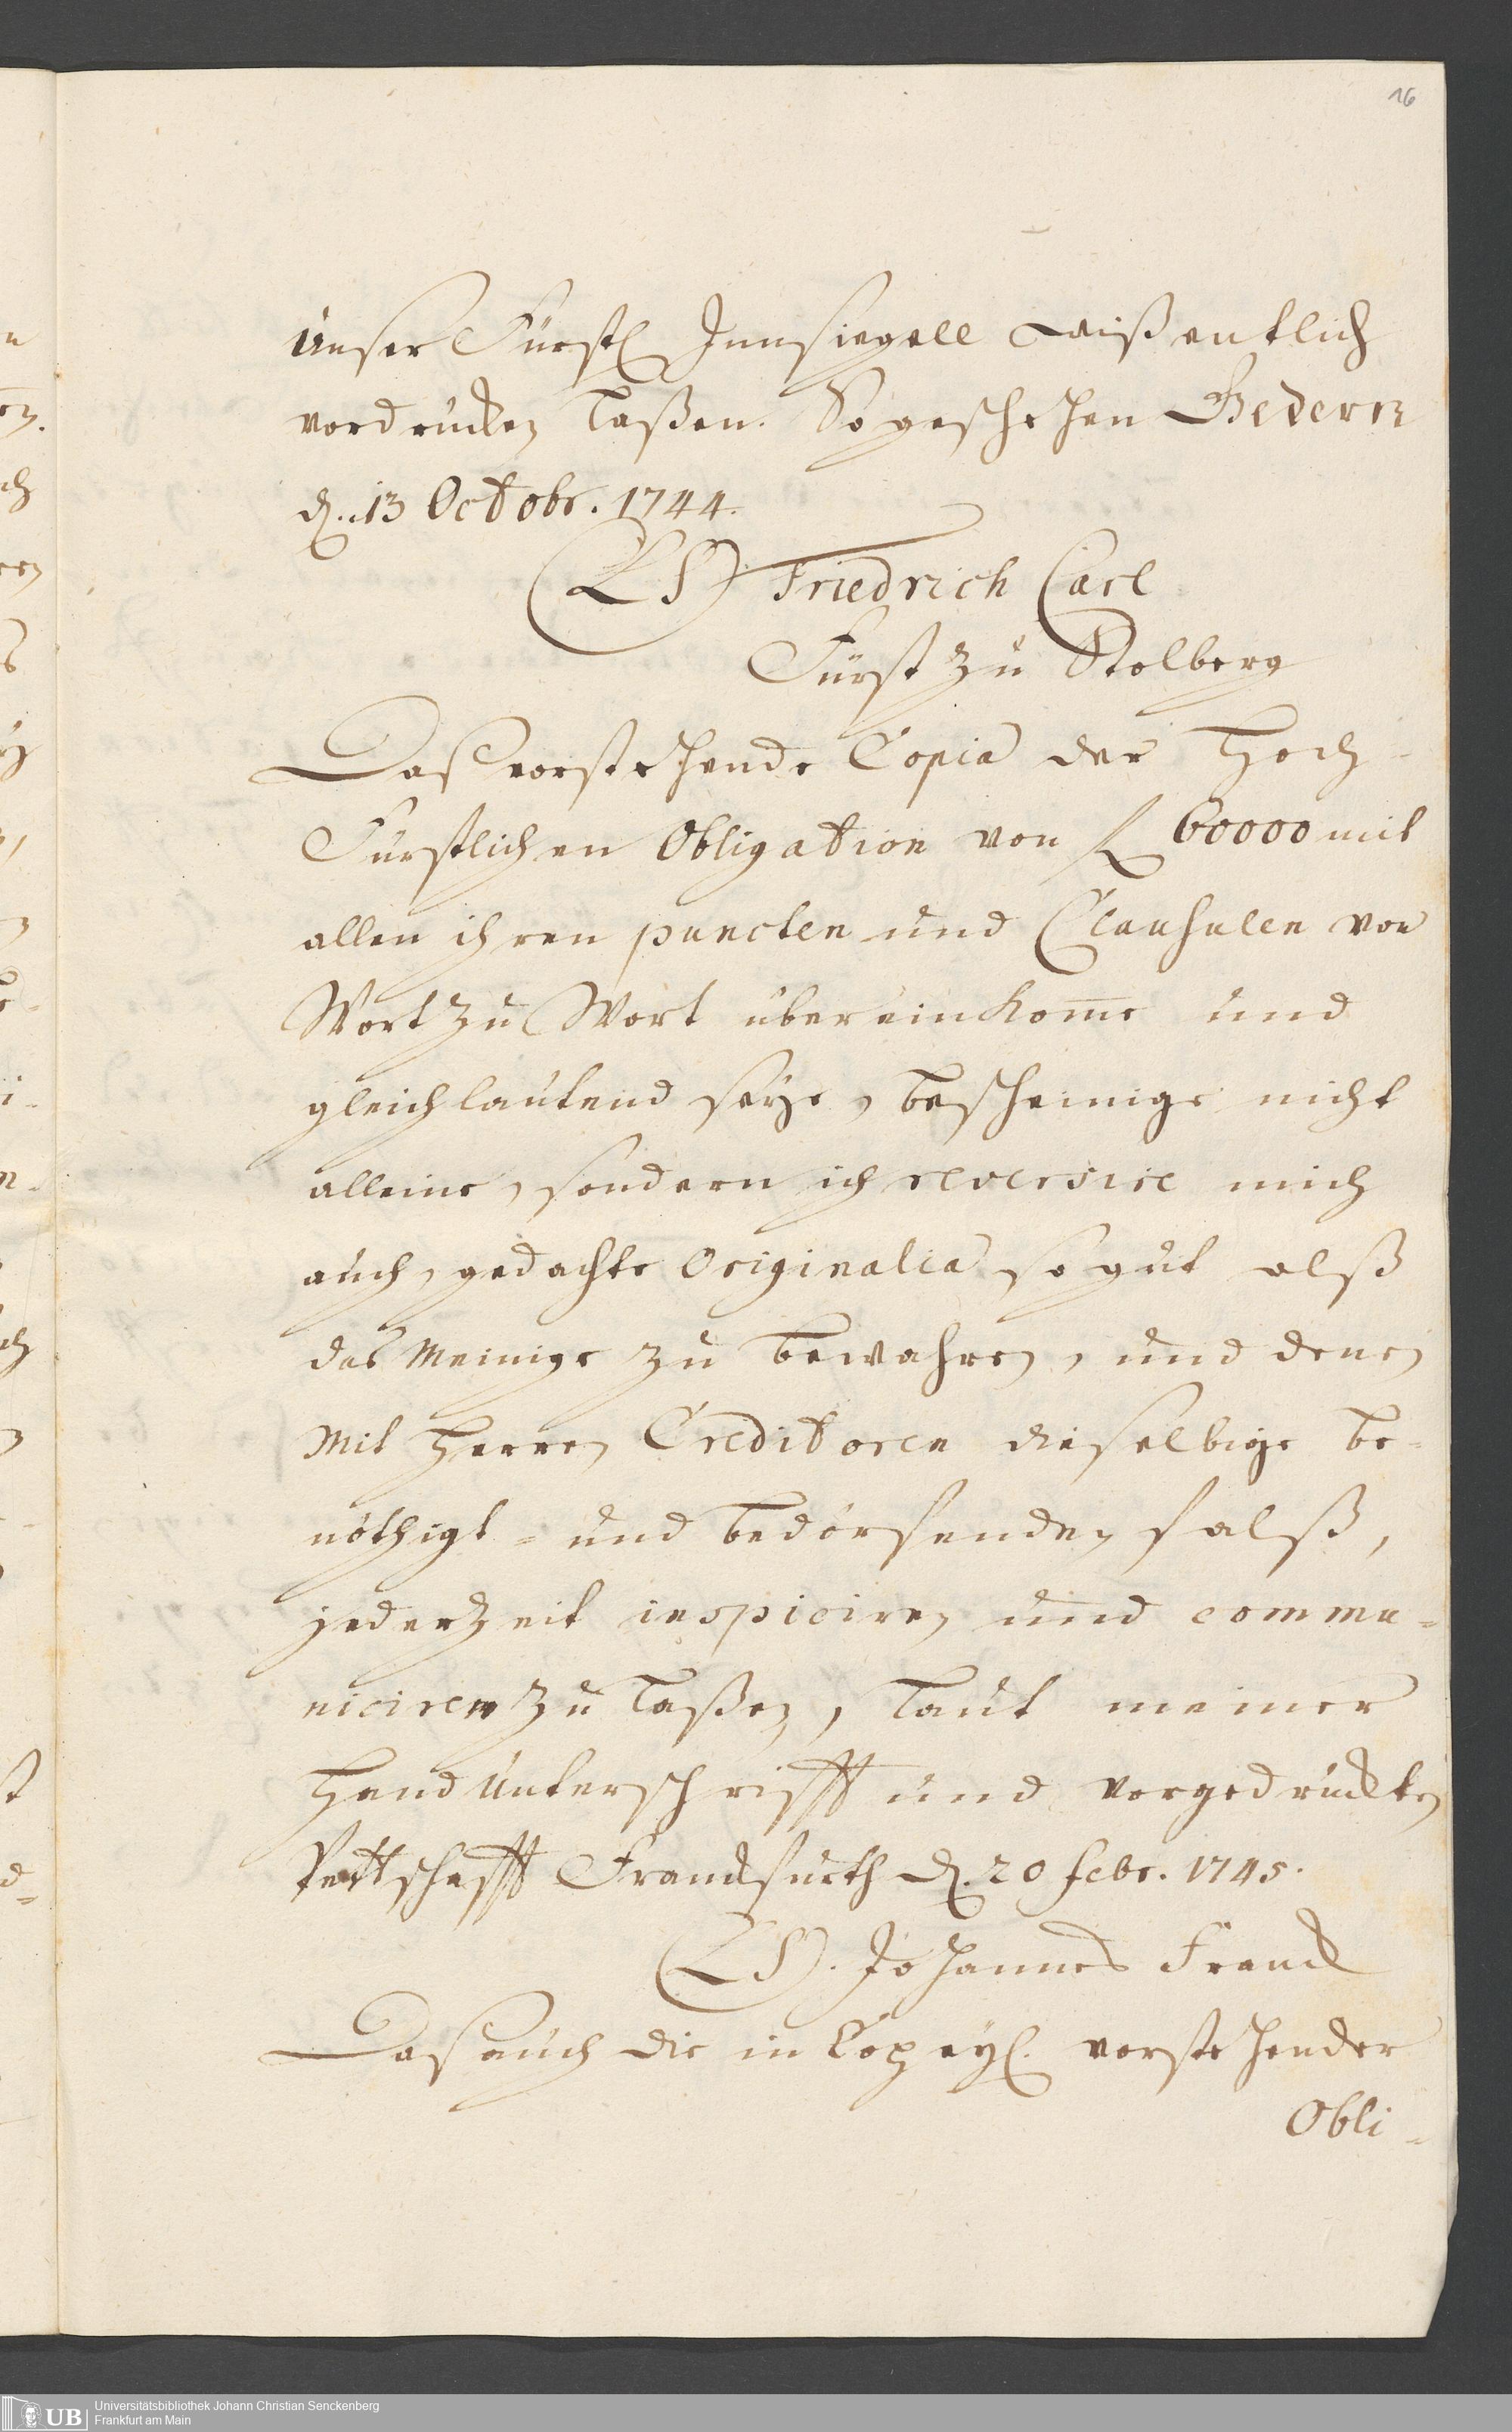 16
Unser Fürstl. Innsiegell wißentlich
vordrucken laßen. So geschehen Gedern
d. 13 Octobr. 1744.
(LS) Friedrich Carl
Fürst zu Stolberg
Daß vorstehende Copia der Hoch-
Fürstlichen Obligation von fl 60000 mit
allen ihren puncten und Clausulen von
Wort zu Wort übereinkom̅e und
gleichlautend seye, bescheinige nicht
alleine, sondern ich reversire mich
auch, gedachte Originalia so gut alß
das Meinige zu bewahren, und denen
Mit Herren Creditoren dieselbige be-
nöthigt- und bedörfenden falß,
jederzeit inspiciren und commu-
niciren zu laßen, laut meiner
Hand Unterschrifft und vorgedruckten
Pettschafft Franckfurth d. 20 febr. 1745.
(LS). Johannes Franck
Daß auch die in Copeyl. vorstehender
Obli-
Universitätsbibliothek Johann Christian Senckenberg
Frankfurt am Main
UB